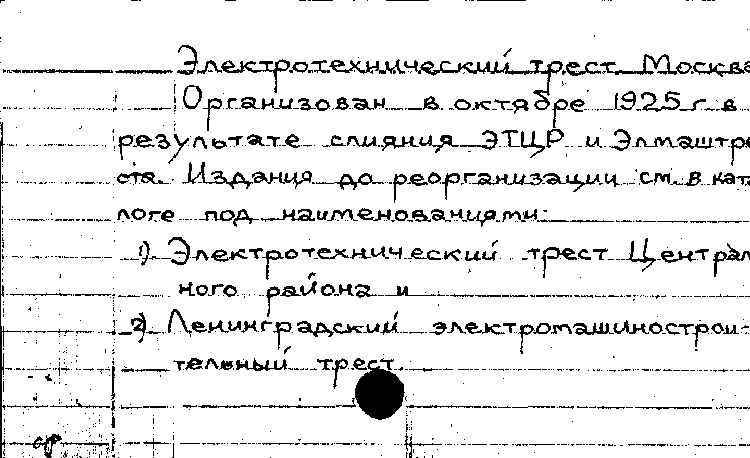 Электротехнический трест Москва
Организован в октябре 1925 г. в
результате слияния ЭТЦР и Элмаштре
ста. Издания до реорганизации см. в ката
логе под наименованиями:
1). Электротехнический трест Централ
ного района и
2). Ленинградский электромашинострои-
тельный трест.
ср.